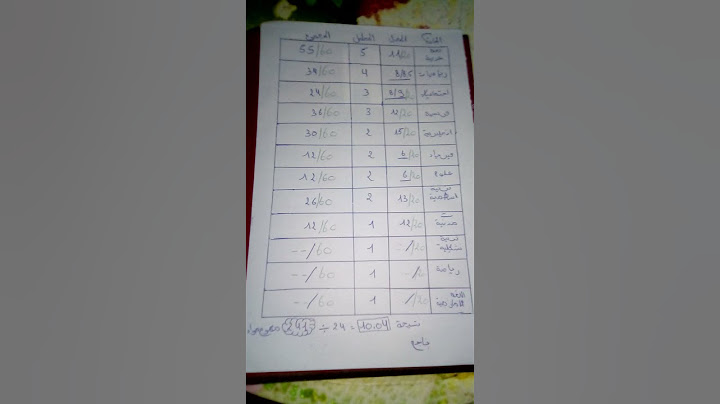 المادة المعدل المعامل المجموع
لغة عربية 11/20 5 55/60
رياضيات 4
اجتماعيات 3 24/60
فرنسية 12/20 3 36/60
انجليزية 15/20 2 30/60
فيزياء 6/20 2 12/60
علوم 6/20 2 12/60
تربية اسلامية 13/20 2 26/60
ت مدنية 12/20 1 12/60
تربية تشكيلية --/20 1 --/60
رياضة 1 --/60
اللغة الأمازيغية /20 1 --/60
241 ÷ 24 = 10.04